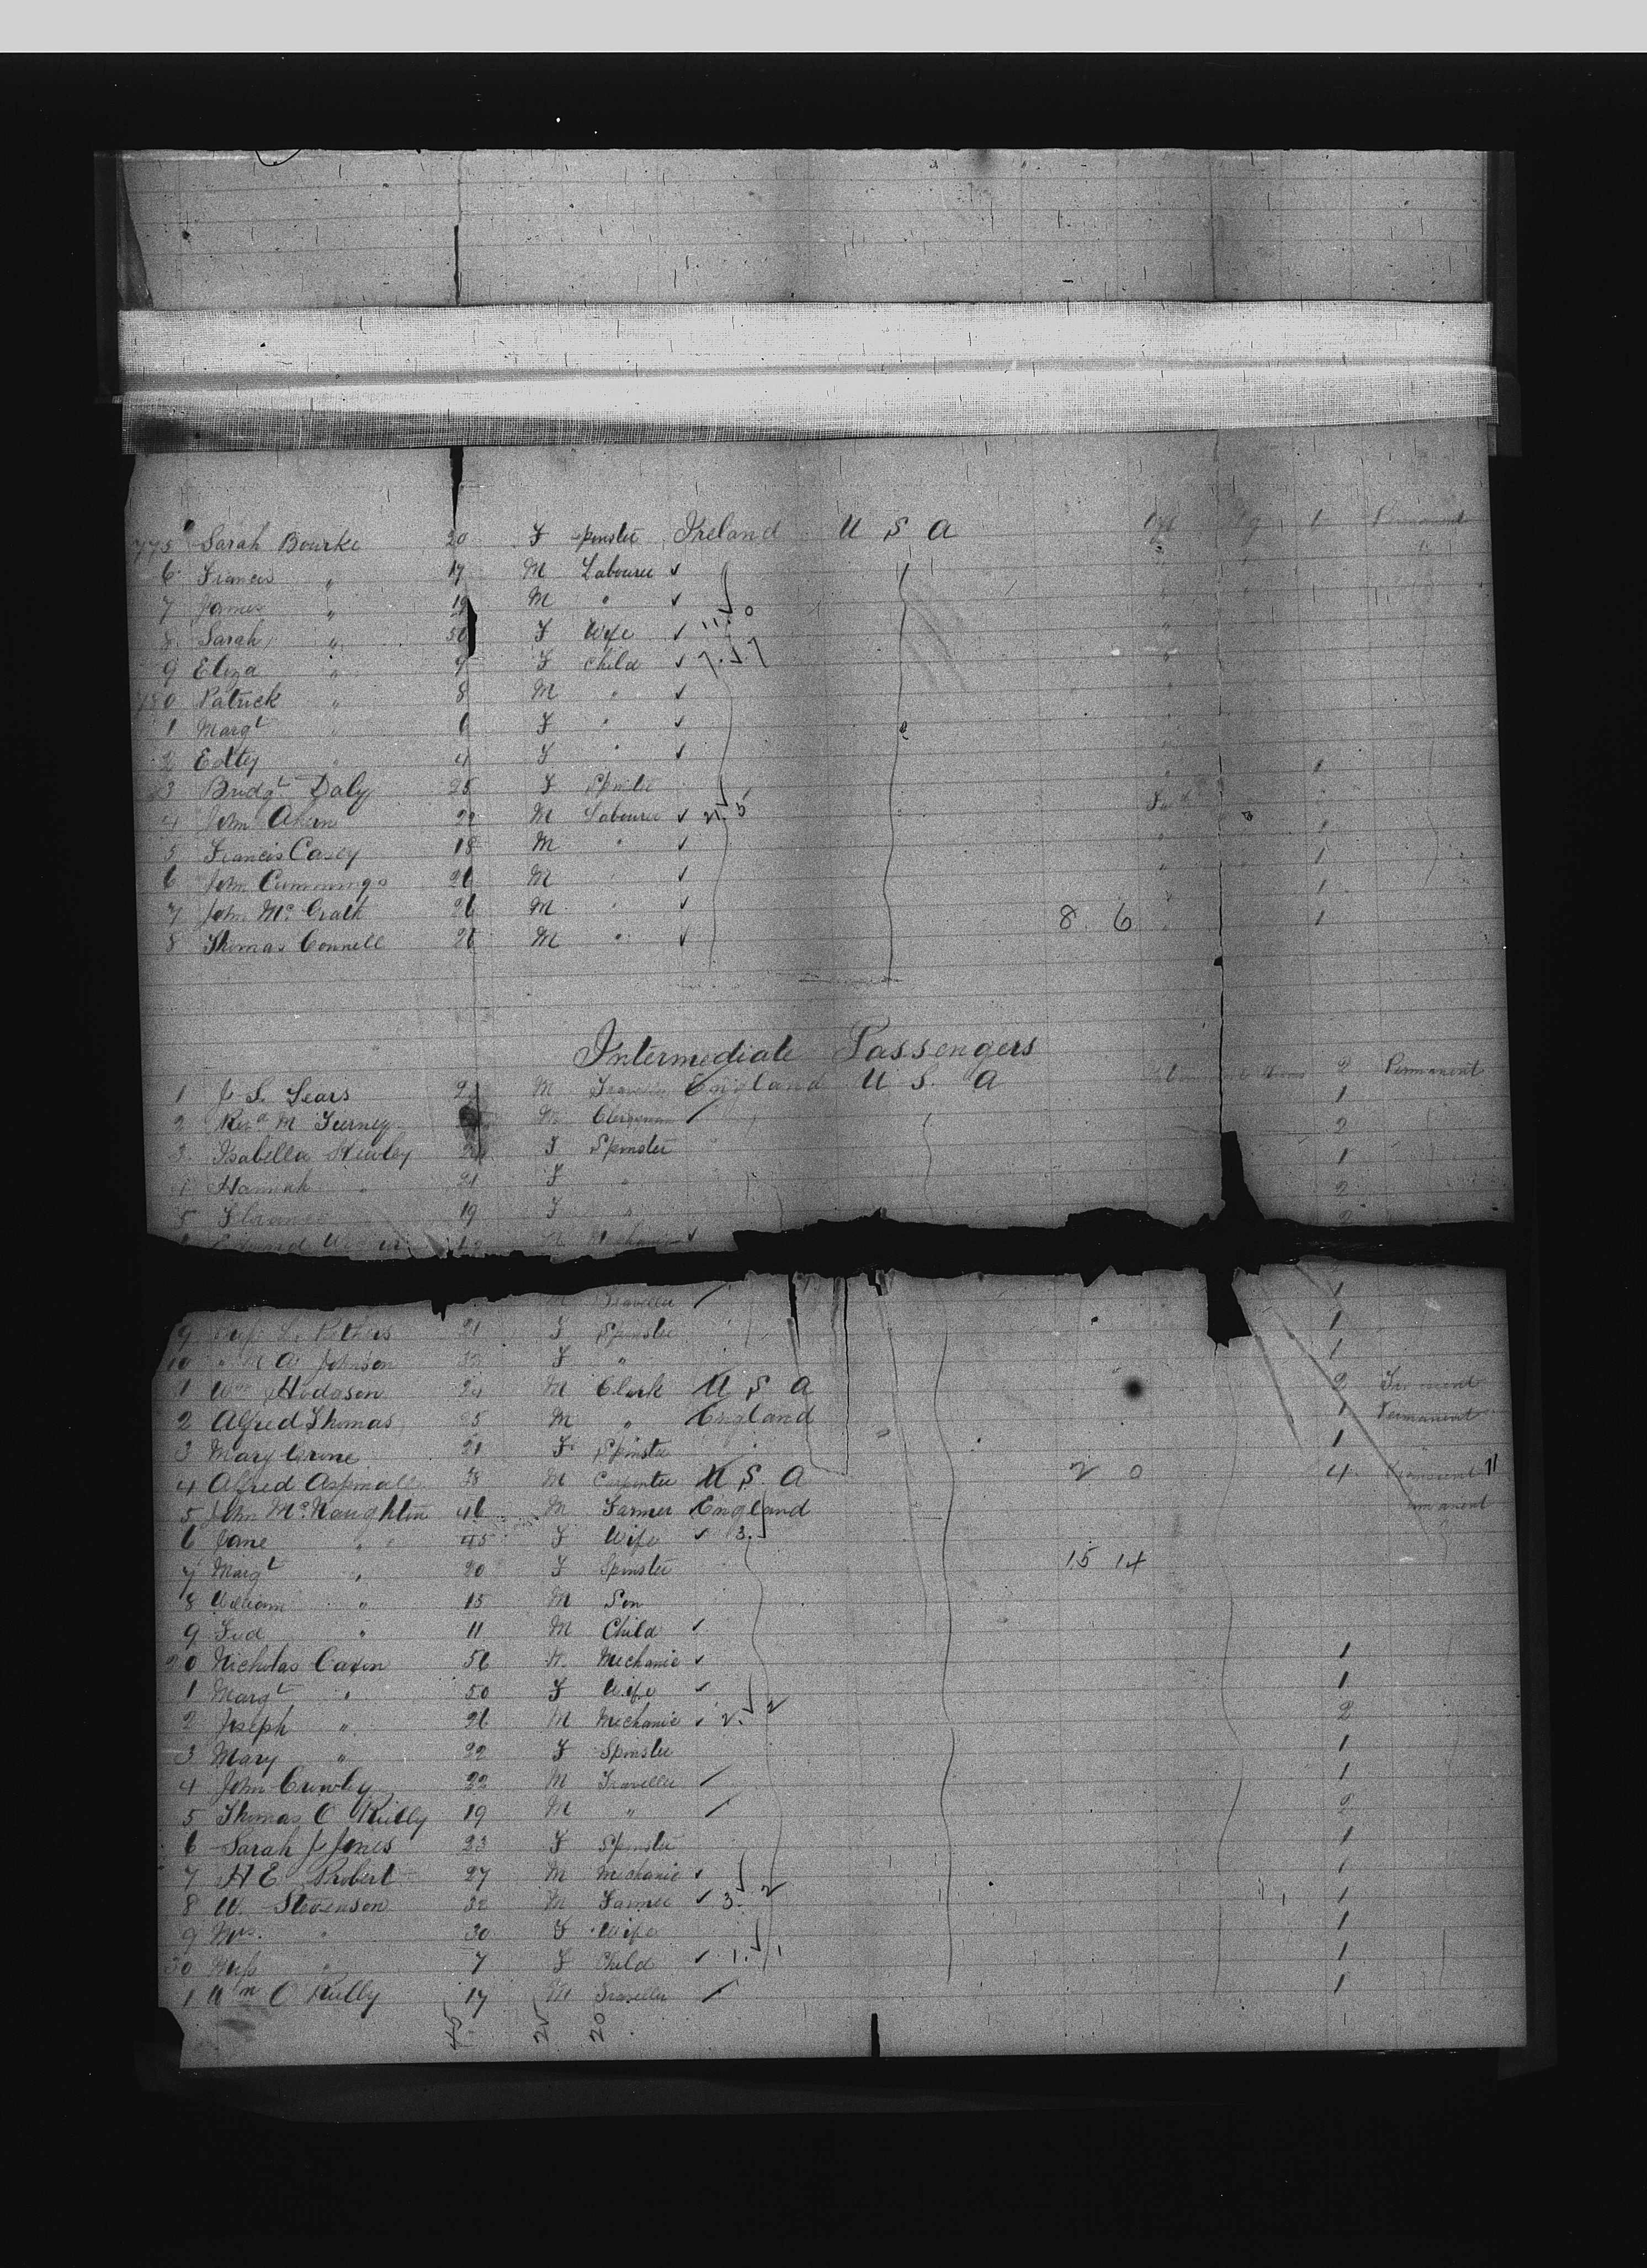 775 Sarah Bourke 20 F Spinster Ireland U S A 1
6 Francis " 17 M Labourer ✓
7 James " 19 M " ✓
8 Sarah " 50 F Wife ✓ 11. 0
9 Eliza " 9 F Child ✓ 7. 7
780 Patrick " 8 M " ✓
1 Margt " 6 F " ✓
2 " 4 F " ✓
3 Bridgt Daly 25 F Spinster 1
4 John 22 M Labourer ✓ 21. 5
5 Francis Casey 18 M " ✓ 1
6 John Cummings 26 M " ✓ 1
7 John McGrath 26 M " ✓ 1
8 Thomas Connell 26 M " ✓ 8 6 1
Intermediate Passengers
1 J S. Sears M Traveller England U S. A 2 Permanent
2 Revd M Turney M Clergyman 1
3 Isabella F Spinster 2
4 Hannah " 21 F " 1
5 Florance " 19 F " 2
Edward M Mechanic ✓ 2
M Traveller 1
9 Miss L. 21 F Spinster 1
10 " M A Johnson 32 F " 1
1 Wm Hodgson 24 M Clerk U S A 2
2 Alfred Thomas 25 M " England 1 Permanent
3 Mary 21 F Spinster 1
4 Alfred Aspinall 38 M Carpenter U S. A 2 0 4 Transient 11
5 John McNaughton 46 M Farmer England
6 Jane " 45 F Wife ✓ 3.
7 Margt " 20 F Spinster 15 14
8 William " 15 M Son
9 Fred " 11 M Child ✓
20 Nicholas 56 M Mechanic ✓ 1
1 Margt " 50 F Wife ✓ 1
2 Joseph " 26 M Mechanic ✓ 2. 2 2
3 Mary " 22 F Spinster 1
4 John Crowley 22 M Traveller 1
5 Thomas O Reilly 19 M " 2
6 Sarah J Jones 23 F Spinster 1
7 H E Probert 27 M Mechanic ✓ 1
8 W. Stevenson 32 M Farmer ✓ 3. 2 1
9 Mrs. " 30 F Wife 1
30 Miss " 7 F Child ✓ 1. 1 1
1 Wm O Reilly 17 M Traveller 1
45 25 20